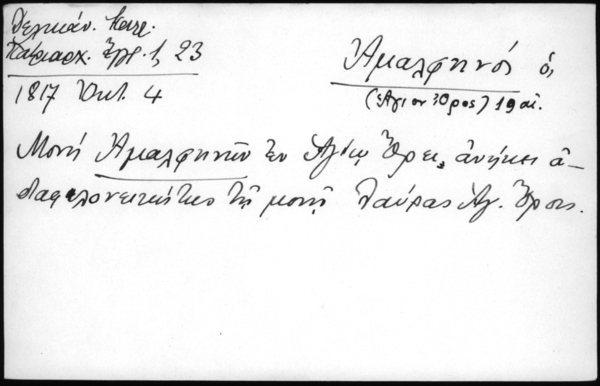 Δελικάν. Καλ.
Πατριαρχ. Ἔγγρ. 1, 23
1817 Ὀκτ. 4
Ἀμαλφηνός ὁ,
(Ἅγιον Ὄρος) 19 αἰ.
Μονή Ἀμαλφηνῶν ἐν Ἁγίῳ Ὄρει, ἀνήκει ἀ-
διαφιλονεικήτως τῇ μονῇ Λαύρας Ἁγ. Ὄρους.